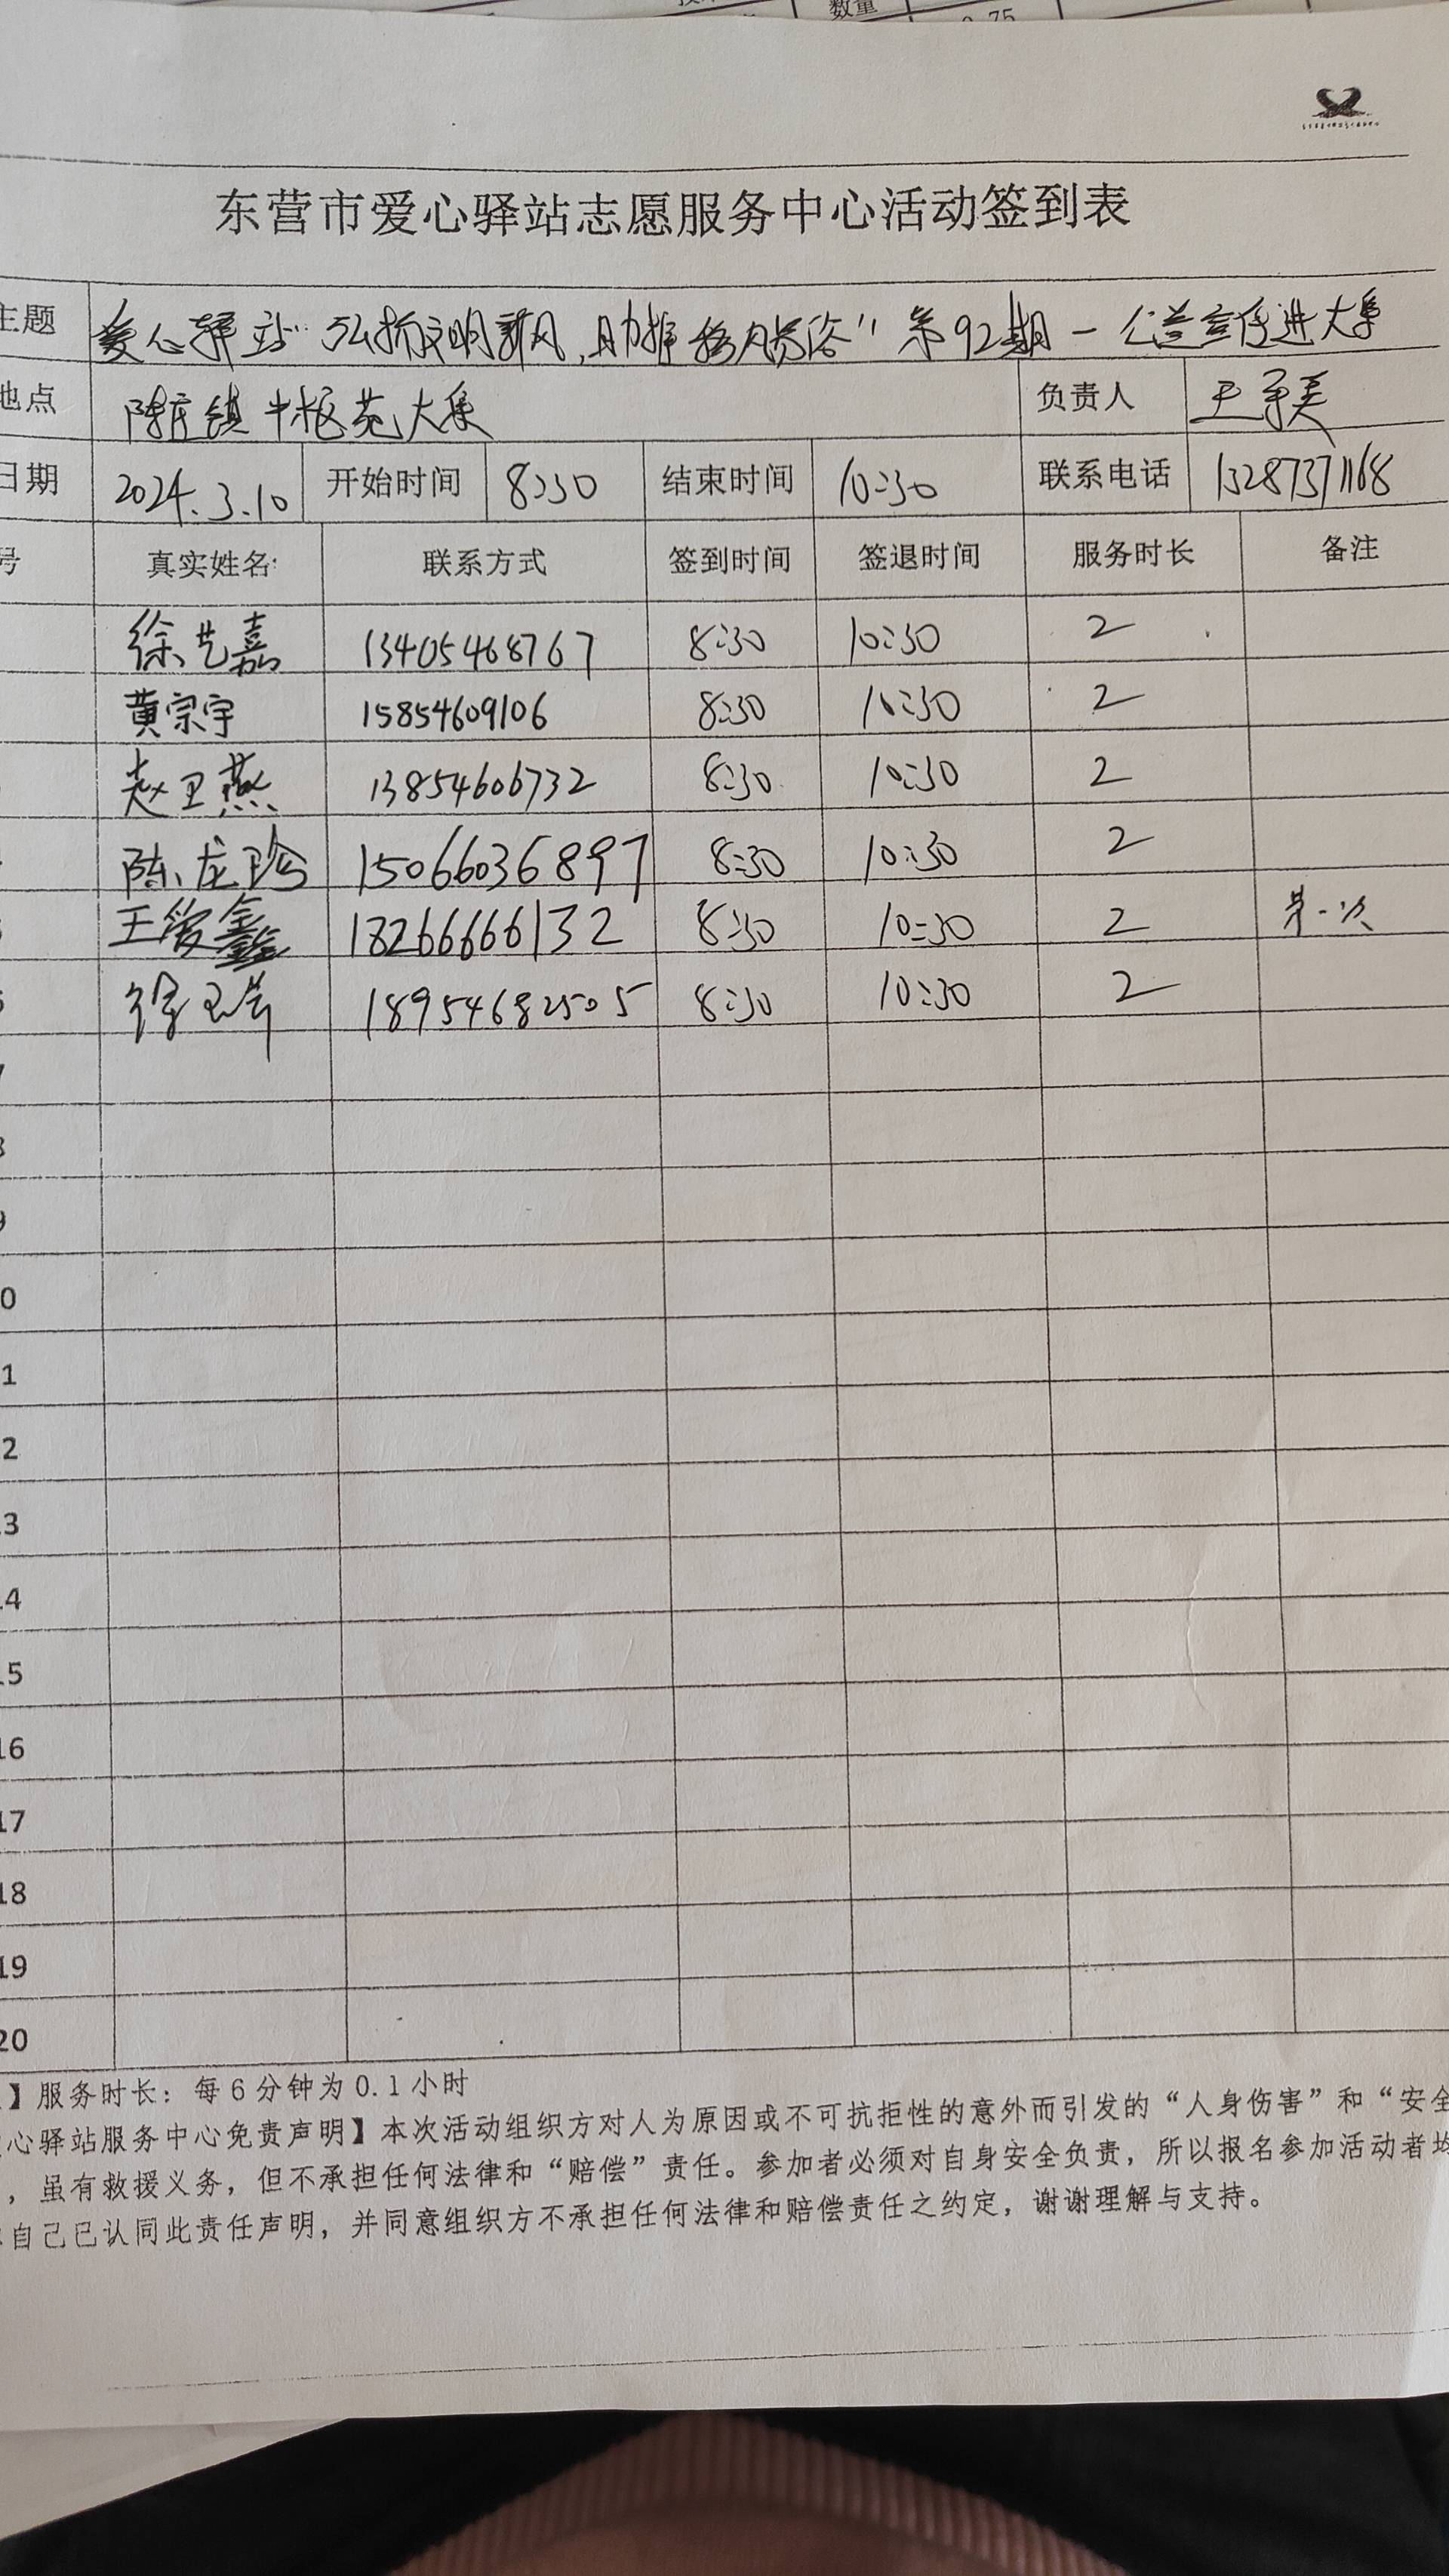 数量
东营市爱心驿站志愿服务中心活动签到表
主题 爱心驿站"弘扬文明新风,助推移风易俗"第92期-公益宣传进大集
地点 陈庄镇中枢苑大集 负责人 王
日期 2024.3.10 开始时间 8:30 结束时间 10:30 联系电话 13287371168
号 真实姓名 联系方式 签到时间 签退时间 服务时长 备注
徐艺嘉 13405468767 8:30 10:30 2
黄宗宇 15854609106 8:30 10:30 2
赵卫燕 13854606732 8:30 10:30 2
陈龙珍 15066036897 8:30 10:30 2
王爱鑫 18266666132 8:30 10:30 2 第一次
徐玉芹 18954682505 8:30 10:30 2
7
8
9
0
1
2
.3
.4
.5
16
17
18
19
20
】服务时长:每6分钟为0.1小时
心驿站服务中心免责声明】本次活动组织方对人为原因或不可抗拒性的意外而引发的“人身伤害”和“安全
,虽有救援义务,但不承担任何法律和“赔偿”责任。参加者必须对自身安全负责,所以报名参加活动者均
自己已认同此责任声明,并同意组织方不承担任何法律和赔偿责任之约定,谢谢理解与支持。